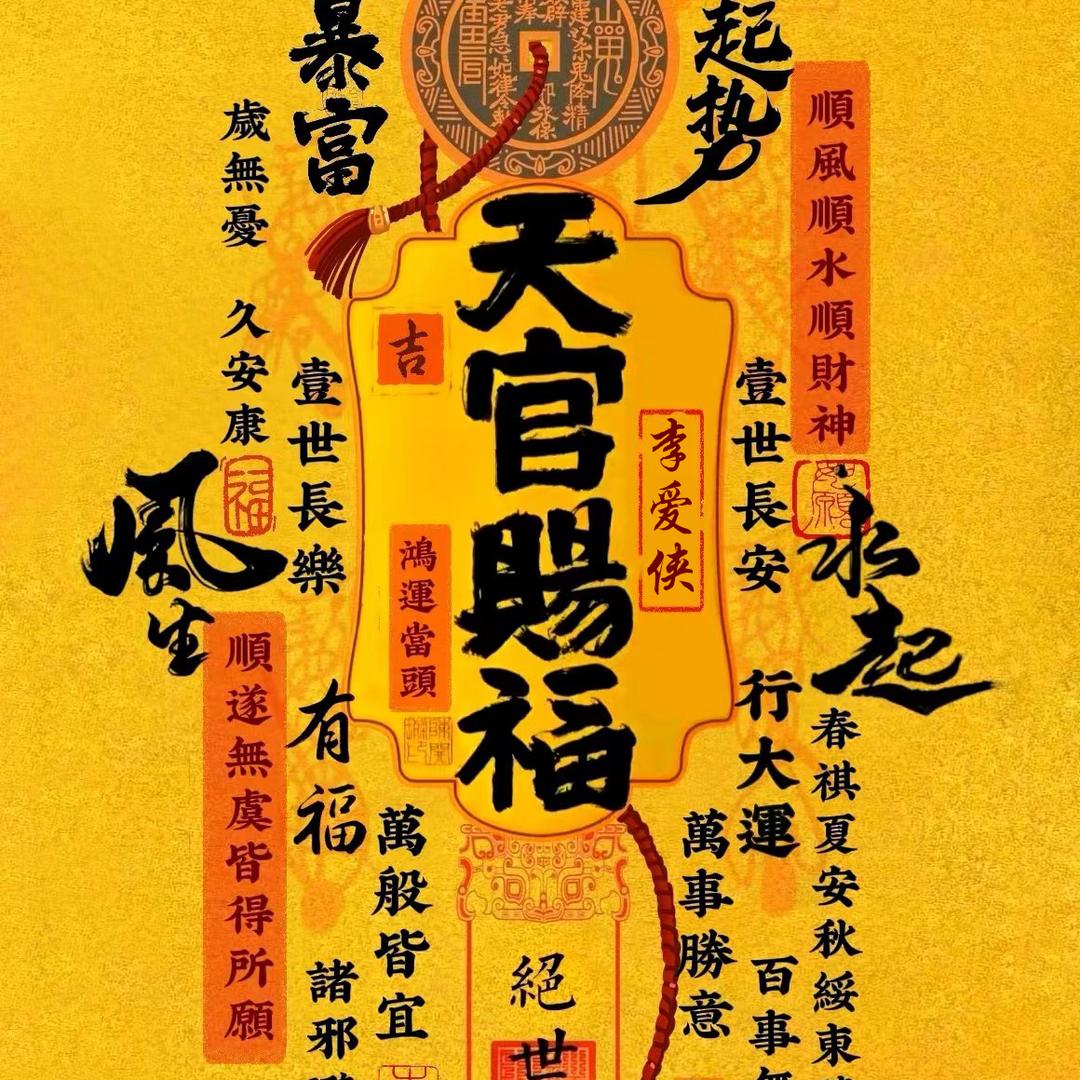 起势
順風順水順財神
永起
春祺夏安秋綏東
壹世長安
行大運
百事無
萬事勝意
李爱侠
天官賜福
絕世
吉
鴻運當頭
萬般皆宜
暴富
壹世長樂
有福
諸邪
歲無憂 久安康
福
風生
順遂無虞皆得所願